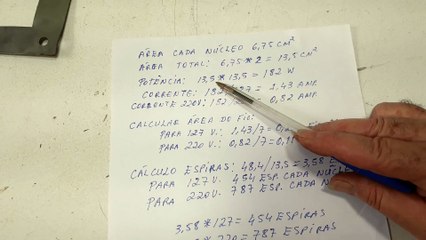 ÁREA CADA NÚCLEO 6,75 CM²
ÁREA TOTAL: 6,75*2 = 13,5 CM²
POTÊNCIA: 13,5*13,5 = 182 W
CORRENTE: 182/127 = 1,43 AMP.
CORRENTE 220V: 182/ = 0,82 AMP.
CALCULAR ÁREA DO FIO:
PARA 127 V: 1,43/7 =
PARA 220 V: 0,82/7 =
CÁLCULO ESPIRAS: 48,4/13,5 = 3,58
PARA 127 V. 454 ESP. CADA
PARA 220V 787 ESP. CADA
3,58*127 = 454 ESPIRAS
= 787 ESPIRAS